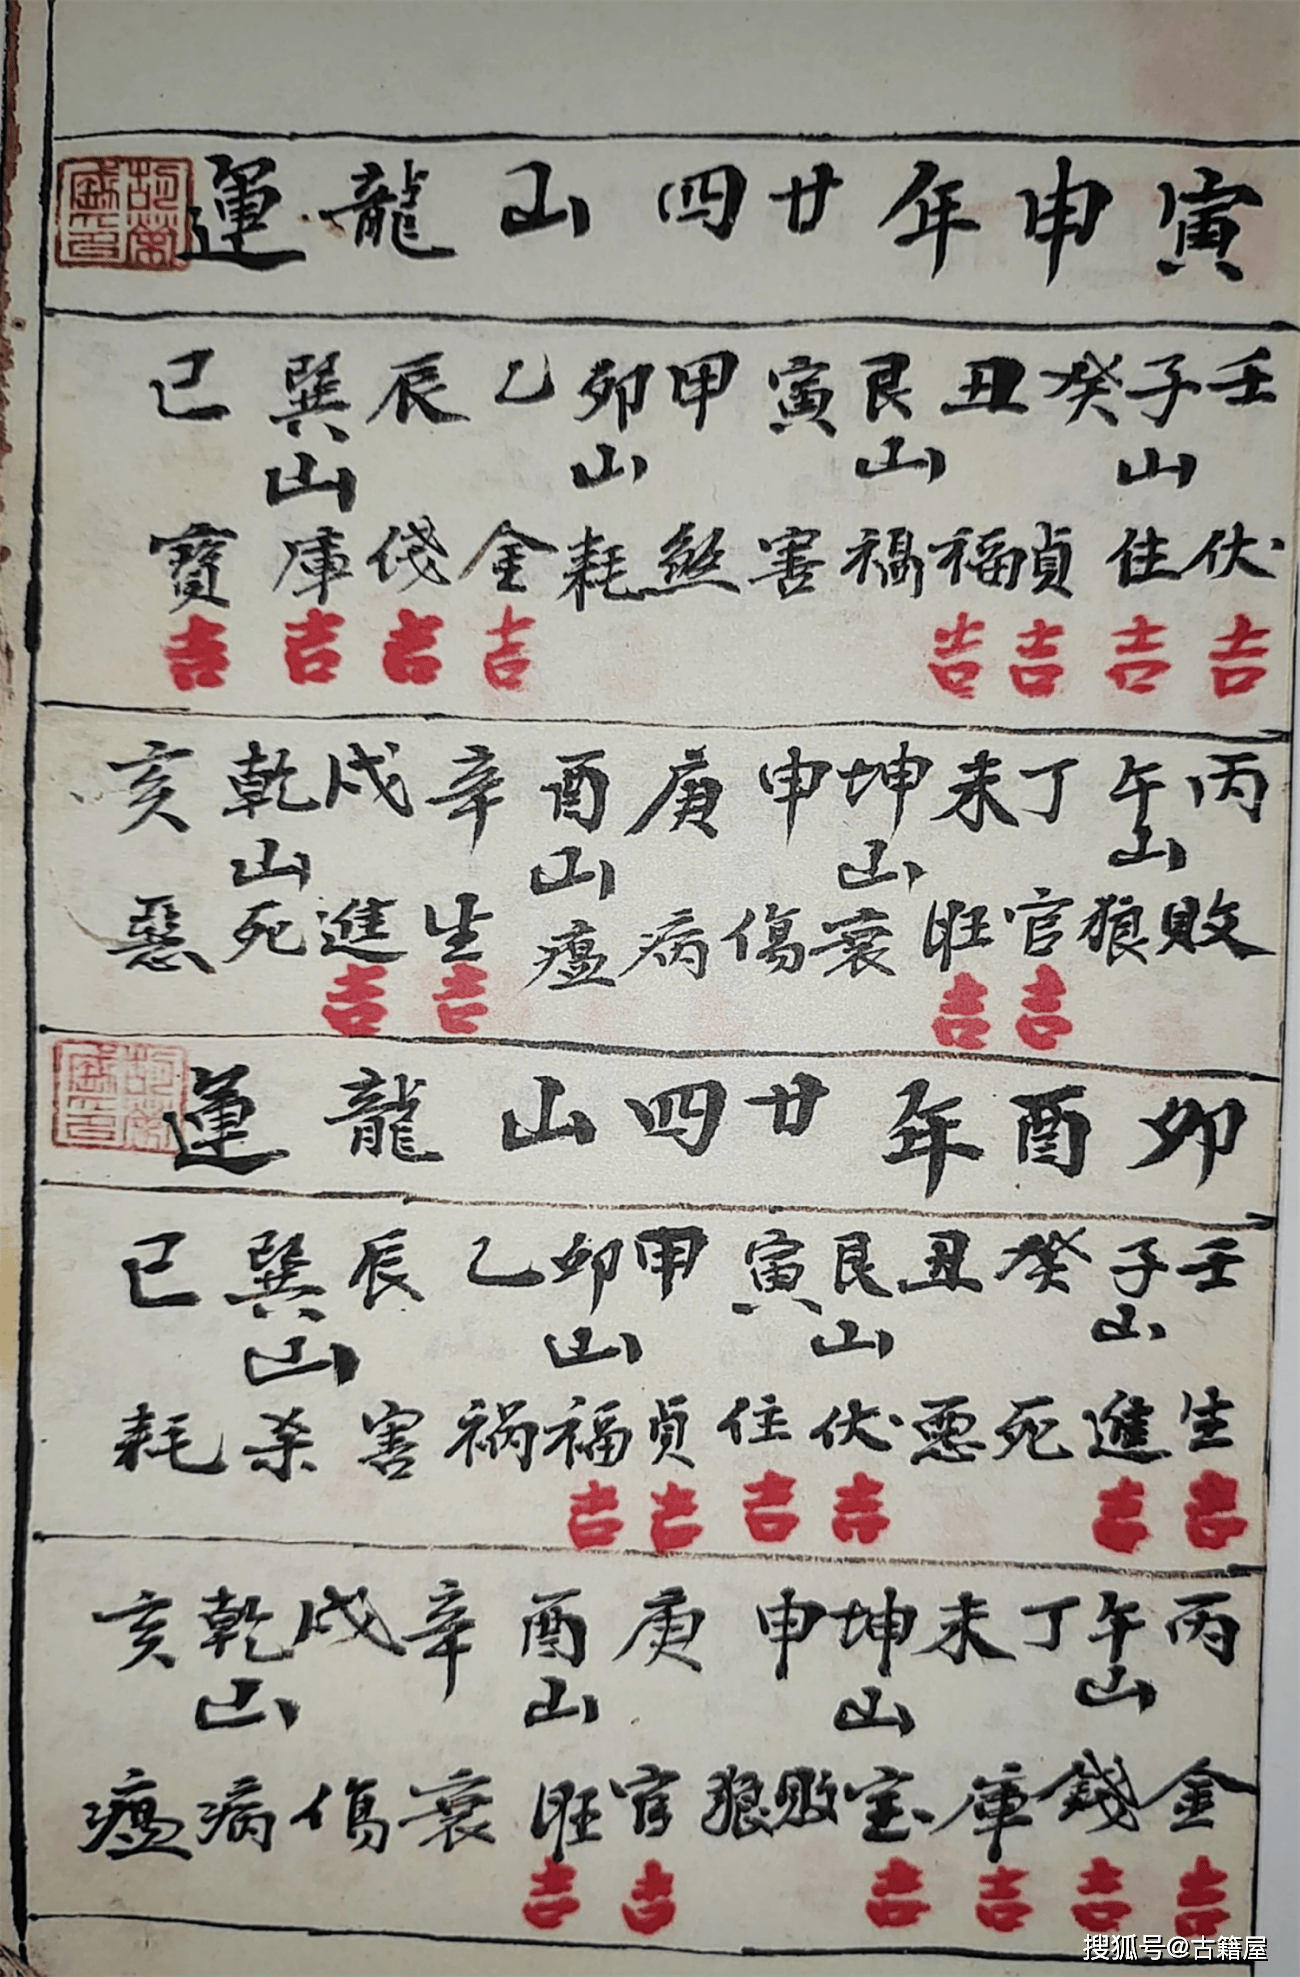 寅申年廿四山龍運
壬子癸丑艮寅甲卯乙辰巽巳
山山山山
伏住貞福禍害煞耗金錢庫寶
吉吉吉吉吉吉吉吉
丙午丁未坤申庚酉辛戌乾亥
山山山山
敗狼官旺衰傷病瘟生進死惡
吉吉吉吉
卯酉年廿四山龍運
壬子癸丑艮寅甲卯乙辰巽巳
山山山山
生進死惡伏住貞福祸害杀耗
吉吉吉吉吉吉
丙午丁未坤申庚酉辛戌乾亥
山山山山
金錢庫宝敗狼官旺衰傷病瘟
吉吉吉吉吉吉
搜狐号@古籍屋